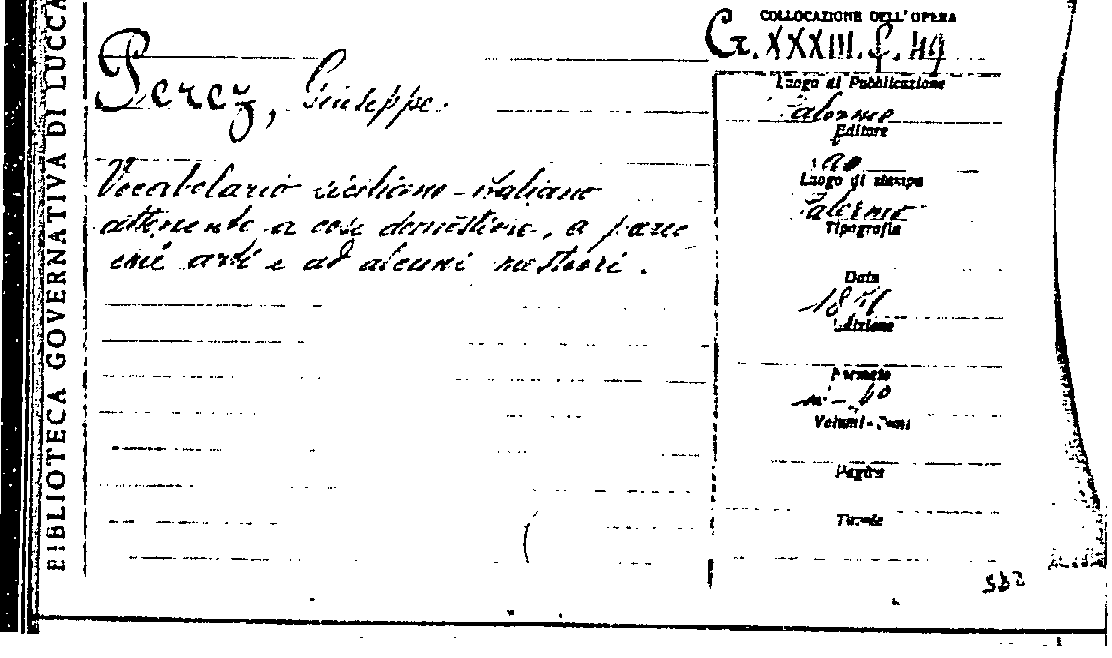 BIBLIOTECA GOVERNATIVA DI LUCCA
COLLOCAZIONE DELL'OPERA
G. XXXIII. f. 49
Perez, Giuseppe.
Vocabolario siciliano-italiano
attenente a cose domestiche, a parec
chi arti e ad alcuni mestieri.
Luogo di Pubblicazione
Palermo
Editore
Luogo di stampa
Palermo
Tipografia
Data
Edizione
Formato
in-
Volumi-Tomi
Pagine
Tavole